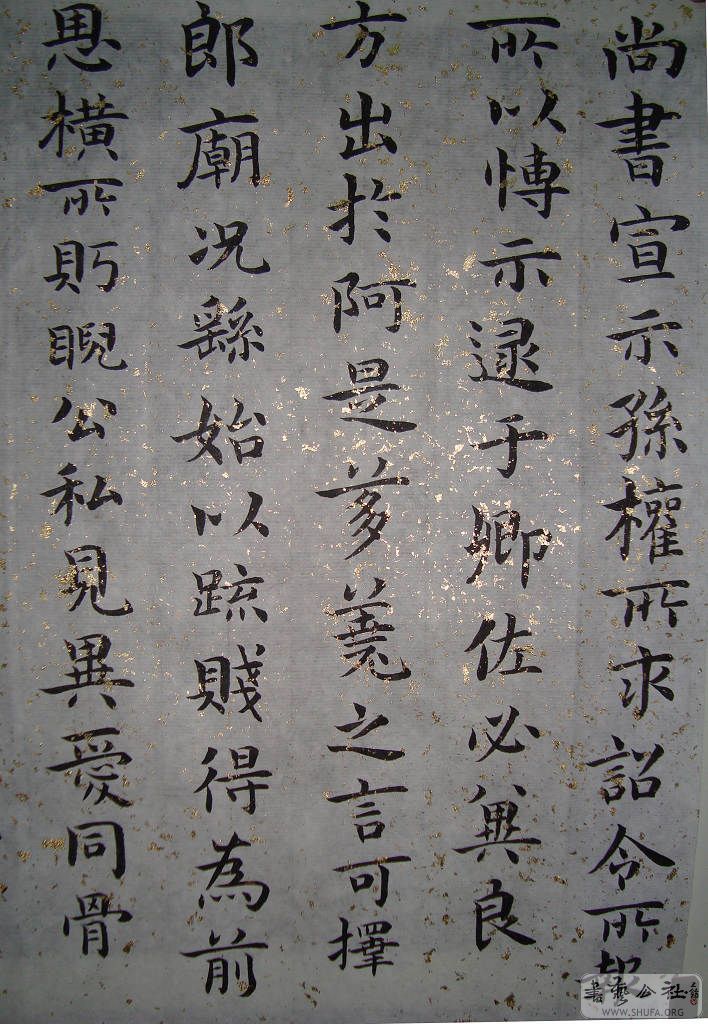 尚書宣示孫權所求詔令所
所以愽示逮于卿佐必兾良
方出於阿是芻蕘之言可擇
郎廟况繇始以疏賤得為前
恩橫所眄睨公私見異愛同骨
書藝公社
WWW.SHUFA.ORG